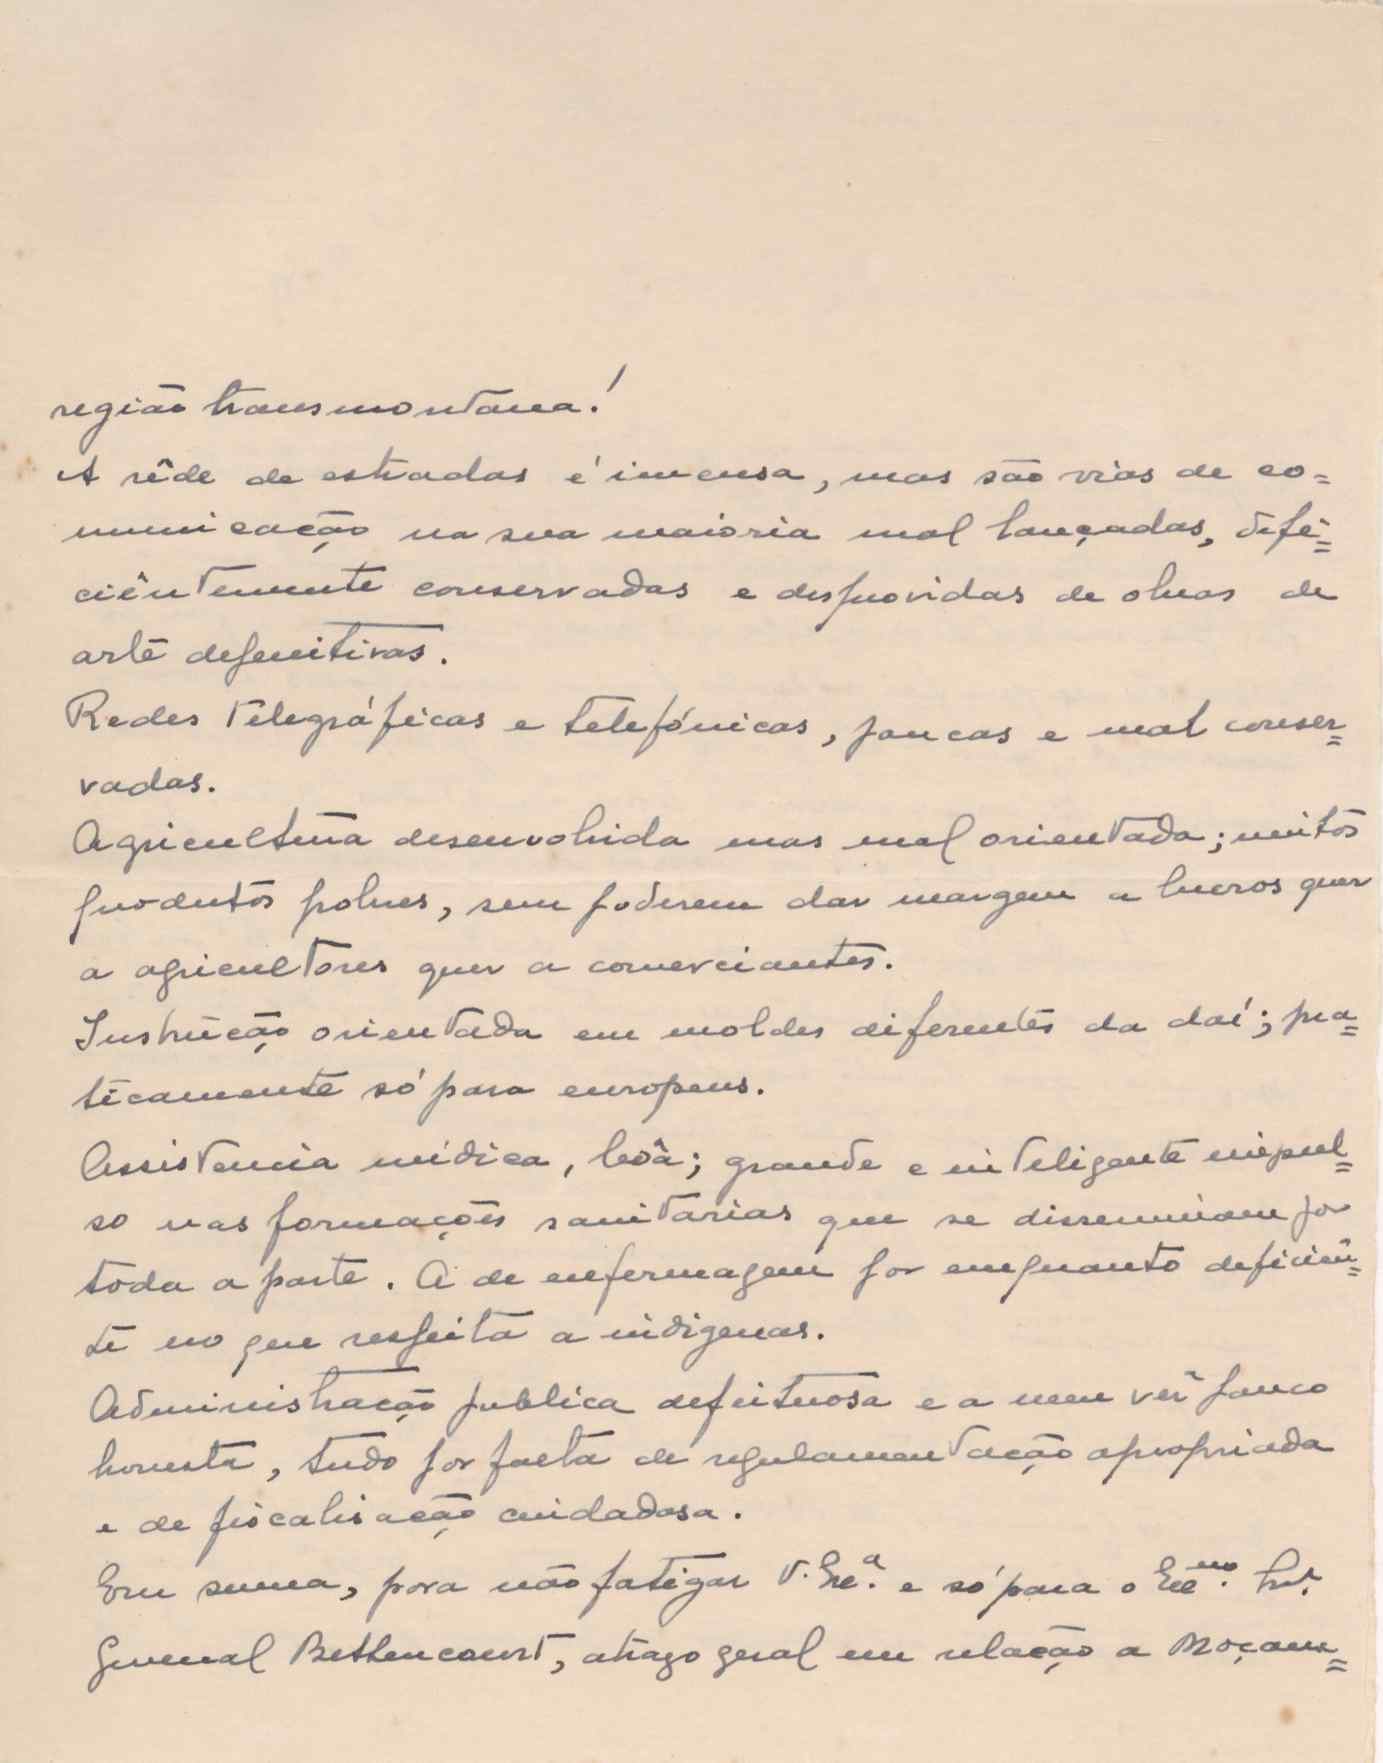 região transmontana!
A rêde de estradas é imensa, mas são vias de co=
municação na sua maioria mal lançadas, defi=
ciêntemente conservadas e desprovidas de obras de
arte defenitivas.
Redes telegráficas e telefónicas, poucas e mal conser=
vadas.
Agricultura desenvolvida mas mal orientada; muitos
produtos pobres, sem poderem dar margem a lucros quer
a agricultores quer a comerciantes.
Instrução orientada em moldes diferentes da daí; pra=
ticamente só para europeus.
Assistencia médica, bôa; grande e inteligente impul=
so nas formações sanitarias que se disseminam por
toda a parte. A de enfermagem por emquanto deficiên=
te no que respeita a indigenas.
Administração publica defeituosa e a meu vêr pouco
honesta, tudo por falta de regulamentação apropriada
e de fiscalisação cuidadosa.
Em suma, para não fatigar V. Exc.ª e só para o Exc.mo Snr.
General Bettencourt, atrazo geral em relação a Moçam=